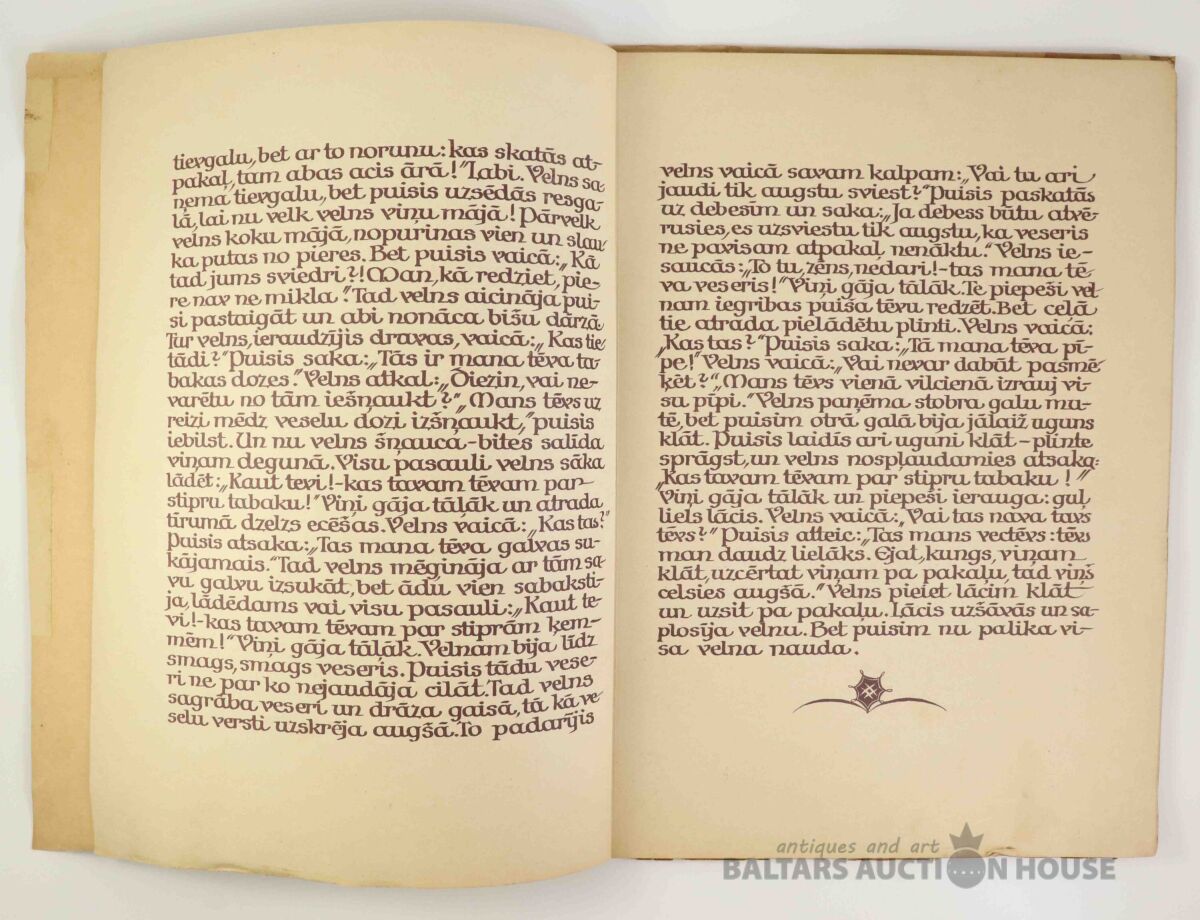 tievgalu, bet ar to norunu: kas skatās at-
pakaļ, tam abas acis ārā!" Labi. Velns sa-
ņema tievgalu, bet puisis uzsēdās resga-
lā, lai nu velk velns viņu mājā! Pārvelk
velns koku mājā, nopurinas vien un slau-
ka putas no pieres. Bet puisis vaicā: „Kā
tad jums sviedri?! Man, kā redziet, pie-
re nav ne mikla". Tad velns aicināja pui-
si pastaigāt un abi nonāca bišu dārzā.
Tur velns, ieraudzījis dravas, vaicā: „Kas tie
tādi?" Puisis saka: „Tās ir mana tēva ta-
bakas dozes". Velns atkal: „Diezin, vai ne-
varētu no tām iešņaukt?" „Mans tēvs uz
reizi mēdz veselu dozi izšņaukt," puisis
iebilst. Un nu velns šņaucā - bites salīda
viņam degunā. Visu pasauli velns sāka
lādēt: „Kaut tevi! - kas tavam tēvam par
stipru tabaku!" Viņi gāja tāļāk un atrada
tīrumā dzelzs ecēšas. Velns vaicā: „Kas tas?"
Puisis atsaka: „Tas mana tēva galvas su-
kājamais." Tad velns mēgināja ar tām sa-
vu galvu izsukāt, bet ādu vien sabaksti-
ja, lādēdams vai visu pasauli: „Kaut te-
vi! - kas tavam tēvam par stiprām ķem-
mēm!" Viņi gāja tāļāk. Velnam bija līdz
smags, smags veseris. Puisis tādu vese-
ri ne par ko nejaudāja cilāt. Tad velns
sagrāba veseri un drāza gaisā, tā kā ve-
selu versti uzskrēja augšā. To padarījis
velns vaicā savam kalpam: „Vai tu ari
jaudi tik augstu sviest?" Puisis paskatās
uz debesīm un saka: „Ja debess būtu atvē-
rusies, es uzsviestu tik augstu, ka veseris
ne pavisam atpakaļ nenāktu." Velns ie-
saucās: „To tu, zēns, nedari! - tas mana tē-
va veseris!" Viņi gāja tālāk. Te piepeši vel-
nam iegribas puiša tēvu redzēt. Bet ceļā
tie atrada pielādētu plinti. Velns vaicā:
„Kas tas?" Puisis saka: „Tā mana tēva pī-
pe!" Velns vaicā: „Vai nevar dabūt pasmē-
ķēt?" „Mans tēvs vienā vilcienā izrauj vi-
su pīpi." Velns paņēma stobra galu mu-
tē, bet puisim otrā galā bija jālaiž uguns
klāt. Puisis laidis ari uguni klāt - plinte
sprāgst, un velns nospļaudamies atsaka:
„Kas tavam tēvam par stipru tabaku!"
Viņi gāja tālāk un piepeši ierauga: guļ
liels lācis. Velns vaicā: „Vai tas nava tavs
tēvs?" Puisis atteic: „Tas mans vectēvs: tēvs
man daudz lielāks. Ejat, kungs, viņam
klāt, uzcērtat viņam pa pakaļu, tad viņš
celsies augšā." Velns pieiet lācim klāt
un uzsit pa pakaļu. Lācis uzšāvās un sa-
plosīja velnu. Bet puisim nu palika vi-
sa velna nauda.
antiques and art
BALTARS AUCTION HOUSE